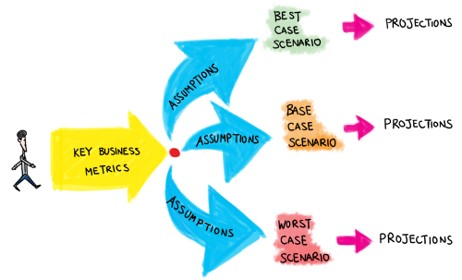 KEY BUSINESS
METRICS
ASSUMPTIONS
BEST
CASE
SCENARIO
PROJECTIONS
ASSUMPTIONS
BASE
CASE
SCENARIO
PROJECTIONS
ASSUMPTIONS
WORST
CASE
SCENARIO
PROJECTIONS